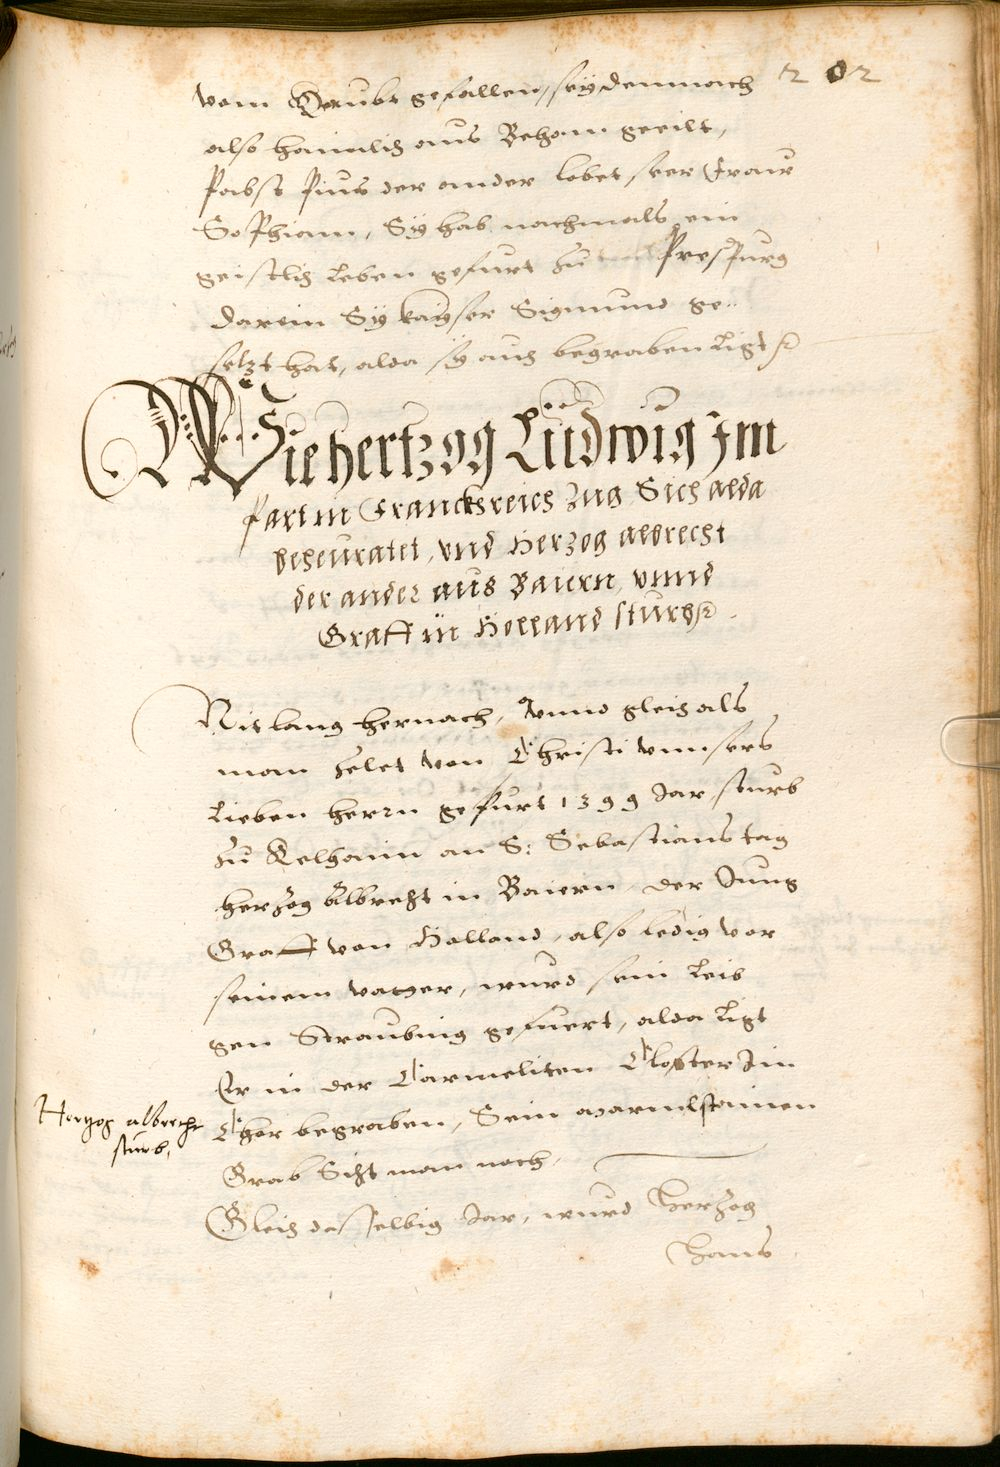 202
vom Haubt gefallen, seydennach
also haimlich aus Beham geeilt,
Pabst Pius der ander lobet seer Fraw
Sophiam, Sÿ hab nachmals ein
geistlich Leben gefurt zu Prespurg
darein Sÿ kaÿser Sigmund ge=
setzt hat, alda sÿ auch begraben Ligt
Wie Hertzog Ludwig Im
Part in Franckhreich Zug, Sich alda
beheuratet, vnd Herzog albrecht
der ander aus Baiern, vnnd
Graff in Holland sturb
Nit lang hernach, Vnnd gleich als
man zelet Von Christi Vnnsers
Lieben herrn gepurt 1399 Jar, sturb
zu Kelhaim an S: Sebastians tag
herzog Albrecht in Baiern, der Jung
Graff von Holland, also ledig vor
seinem vatter, wurd sein Leib
gen Straubing gefuert, alda Ligt
Er in der Carmeliten Closter Im
Chor begraben, Sein marmelstainen
Grab Sicht man noch.
Hertzog albrecht
sturb,
Gleich dasselbig Jar, wurd Herzog
Hans